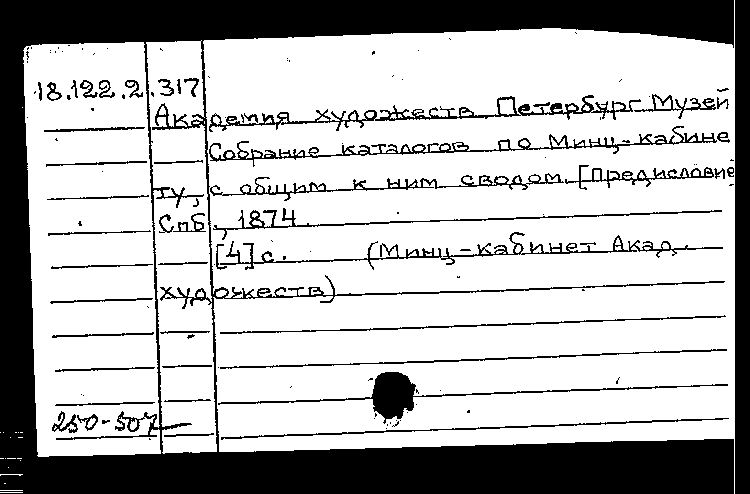 18.122.2.317
Академия художеств Петербург Музей
Собрание каталогов по Минц-кабине
ту, с общим к ним сводом. [Предисловие
Спб., 1874.
[4] с. (Минц-кабинет Акад.
художеств)
250-507